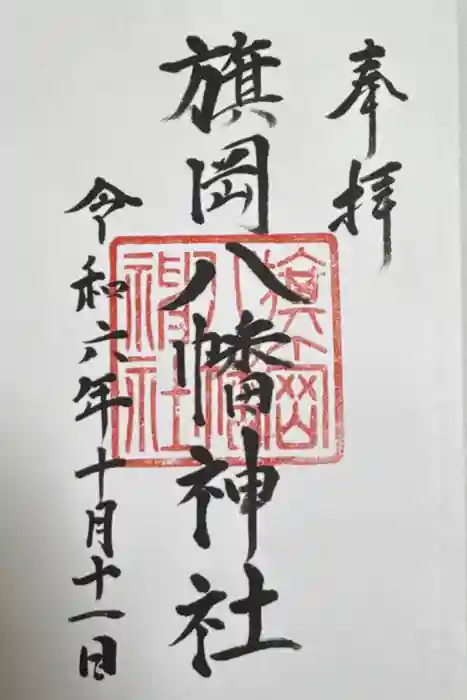 奉拝
旗岡八幡神社
旗岡八幡神社
令和六年十月十一日